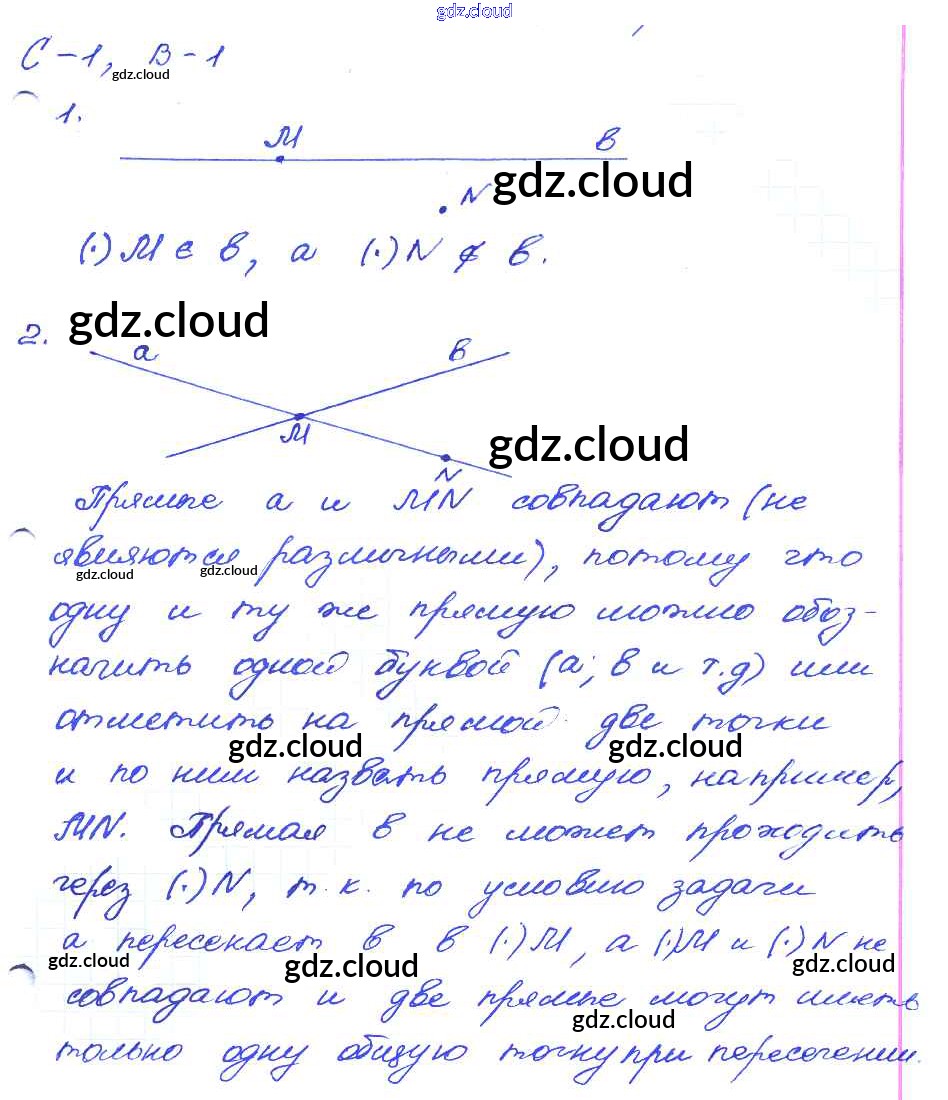 gdz.cloud
С-1, В-1
gdz.cloud
1.
М в
gdz.cloud
N
(·) М ∈ в, а (·) N ∉ в.
2. gdz.cloud
а в
М
gdz.cloud
N
Прямые а и MN совпадают (не
являются различными), потому что
gdz.cloud gdz.cloud
одну и ту же прямую можно обоз-
начить одной буквой (а; в и т.д) или
отметить на прямой две точки
gdz.cloud gdz.cloud
и по ним назвать прямую, например,
MN. Прямая в не может проходить
через (·) N, т.к. по условию задачи
а пересекает в в (·) М, а (·) М и (·) N не
gdz.cloud gdz.cloud gdz.cloud
совпадают и две прямые могут иметь
gdz.cloud
только одну общую точку при пересечении.